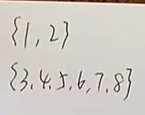 {1,2}
{3,4,5,6,7,8}